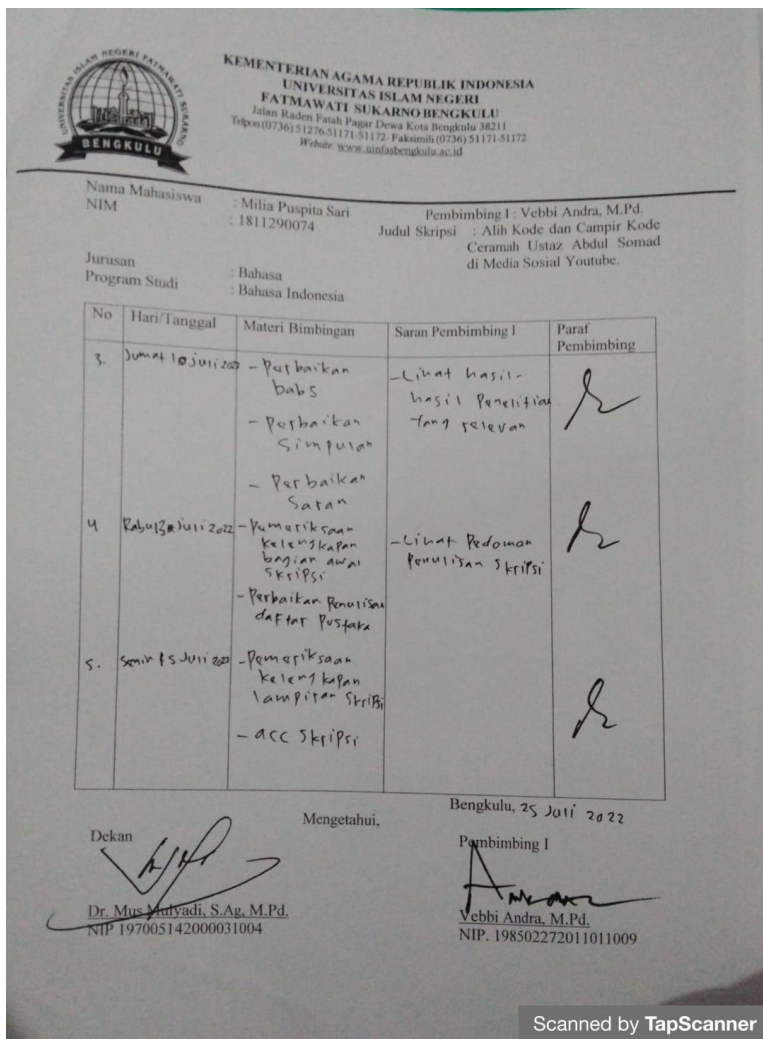 UNIVERSITAS ISLAM NEGERI FATMAWATI SUKARNO
BENGKULU
KEMENTERIAN AGAMA REPUBLIK INDONESIA
UNIVERSITAS ISLAM NEGERI
FATMAWATI SUKARNO BENGKULU
Jalan Raden Fatah Pagar Dewa Kota Bengkulu 38211
Telpon (0736) 51276-51171-51172- Faksimili (0736) 51171-51172
Website: www.uinfasbengkulu.ac.id
Nama Mahasiswa : Milia Puspita Sari
NIM : 1811290074
Jurusan : Bahasa
Program Studi : Bahasa Indonesia
Pembimbing I : Vebbi Andra, M.Pd.
Judul Skripsi : Alih Kode dan Campir Kode
Ceramah Ustaz Abdul Somad
di Media Sosial Youtube.
No Hari/Tanggal Materi Bimbingan Saran Pembimbing I Paraf
Pembimbing
3. Jumat Juli
- Perbaikan
bab 5
- Perbaikan
Simpulan
- Perbaikan
Saran
- Lihat hasil-
hasil Penelitian
Yang relevan
4 Rabu Juli 2022
- Pemeriksaan
kelengkapan
bagian awal
Skripsi
- Perbaikan Penulisan
daftar Pustaka
- Lihat Pedoman
Penulisan Skripsi
5. Senin Juli
- Pemeriksaan
kelengkapan
lampiran Skripsi
- acc Skripsi
Bengkulu, 25 Juli 2022
Mengetahui,
Dekan
Dr. Mus Mulyadi, S.Ag, M.Pd.
NIP 197005142000031004
Pembimbing I
Vebbi Andra, M.Pd.
NIP. 198502272011011009
Scanned by TapScanner